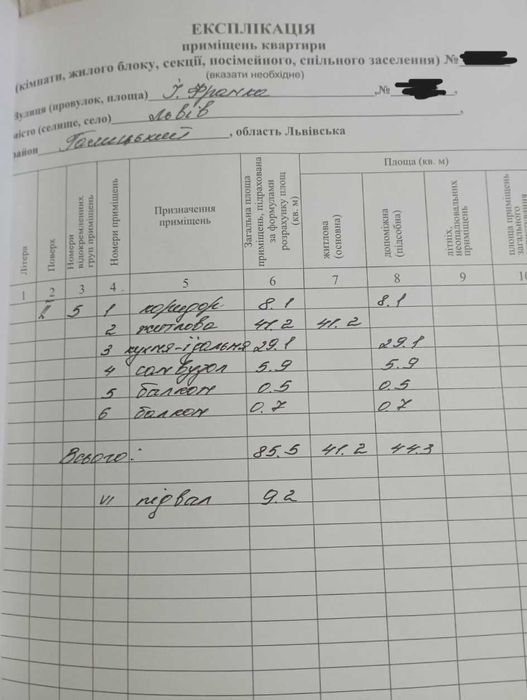 ЕКСПЛІКАЦІЯ
приміщень квартири
(кімнати, жилого блоку, секції, посімейного, спільного заселення) №
(вказати необхідне)
Вулиця (провулок, площа) І. Франка, №
місто (селище, село) Львів
район Галицький, область Львівська
Літера Поверх Номери відокремлених груп приміщень Номери приміщень Призначення приміщень Загальна площа приміщень, підрахована за формулами розрахунку площ (кв. м) Площа (кв. м)
житлова (основна) допоміжна (підсобна) літніх, неопалювальних приміщень площа приміщень загального
1 2 3 4 5 6 7 8 9 10
II 5 1 коридор 8.1 8.1
2 житлова 41.2 41.2
3 кухня-їдальня 29.1 29.1
4 санвузол 5.9 5.9
5 балкон 0.5 0.5
6 балкон 0.7 0.7
Всього: 85.5 41.2 44.3
VI підвал 9.2